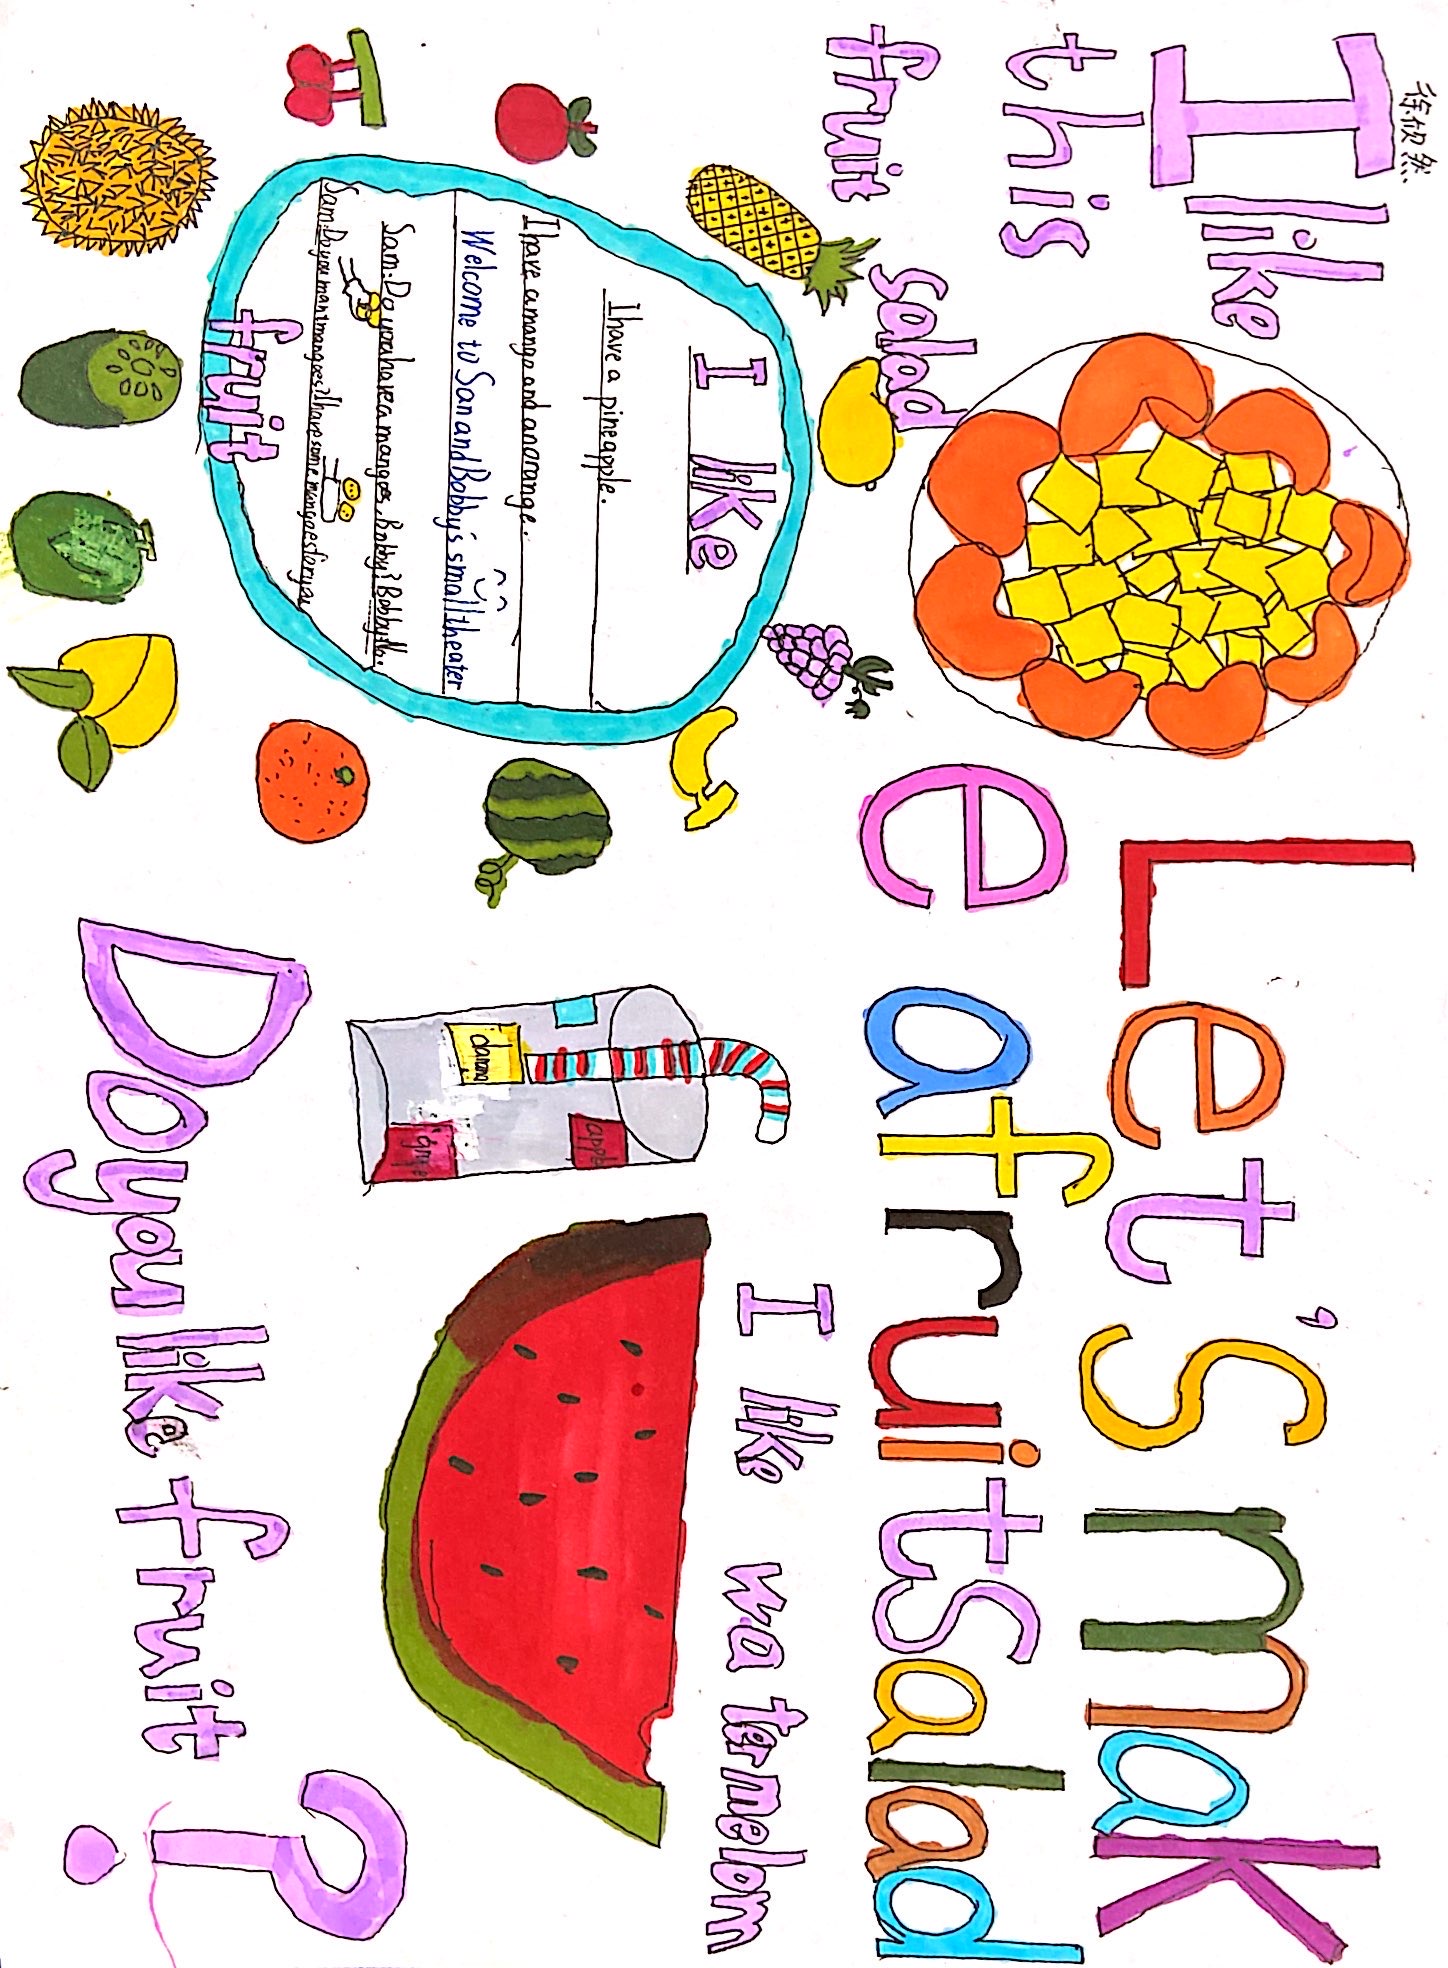 徐欣然
I like
this
fruit salad
Let's mak
e a fruit salad
I like
I have a pineapple.
I have a mango and an orange.
Welcome to San and Bobby's small theater
Sam: Do you have a mangoes, Bobby? Bobby: No.
Sam: Do you mant mangoes? I have some mangoes for you
fruit
appe
I like watermelom
Do you like fruit?